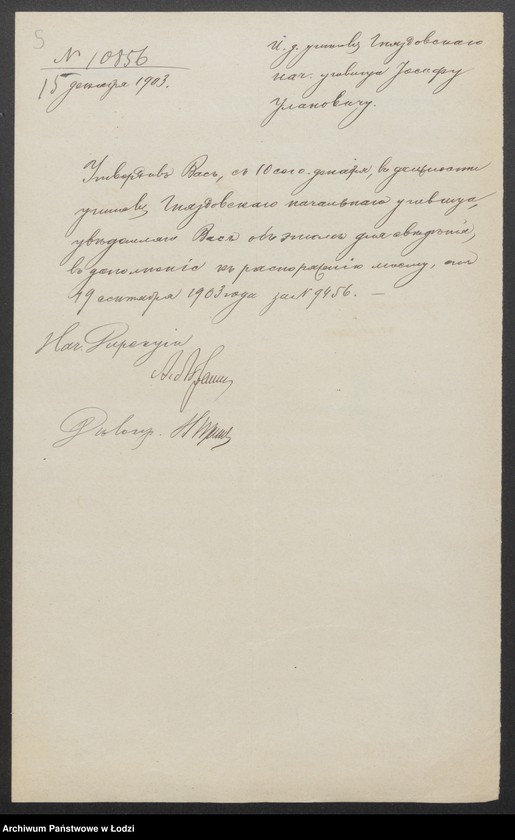 5
N 10856
15 декабря 1903.
И. д. учителя Гнядовскаго
нач. училища Іосифу
Улановичу.
Утвердивъ Васъ, съ 10 сего декабря, въ должности
учителя Гнядовскаго начальнаго училища,
увѣдомляю Васъ объ этомъ для свѣдѣнія,
въ дополненіе къ распоряженію моему, отъ
19 сентября 1903 года за N 9456. —
Нач. Дирекціи
Дѣлопр.
Archiwum Państwowe w Łodzi